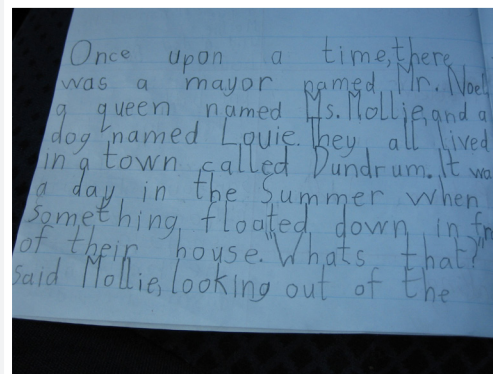 Once upon a time, there
was a mayor named Mr. Noel
a queen named Ms. Mollie, and a
dog named Louie. They all lived
in a town called Dundrum. It wa
a day in the Summer when
something floated down in fr
of their house. "Whats that?"
said Mollie, looking out of the